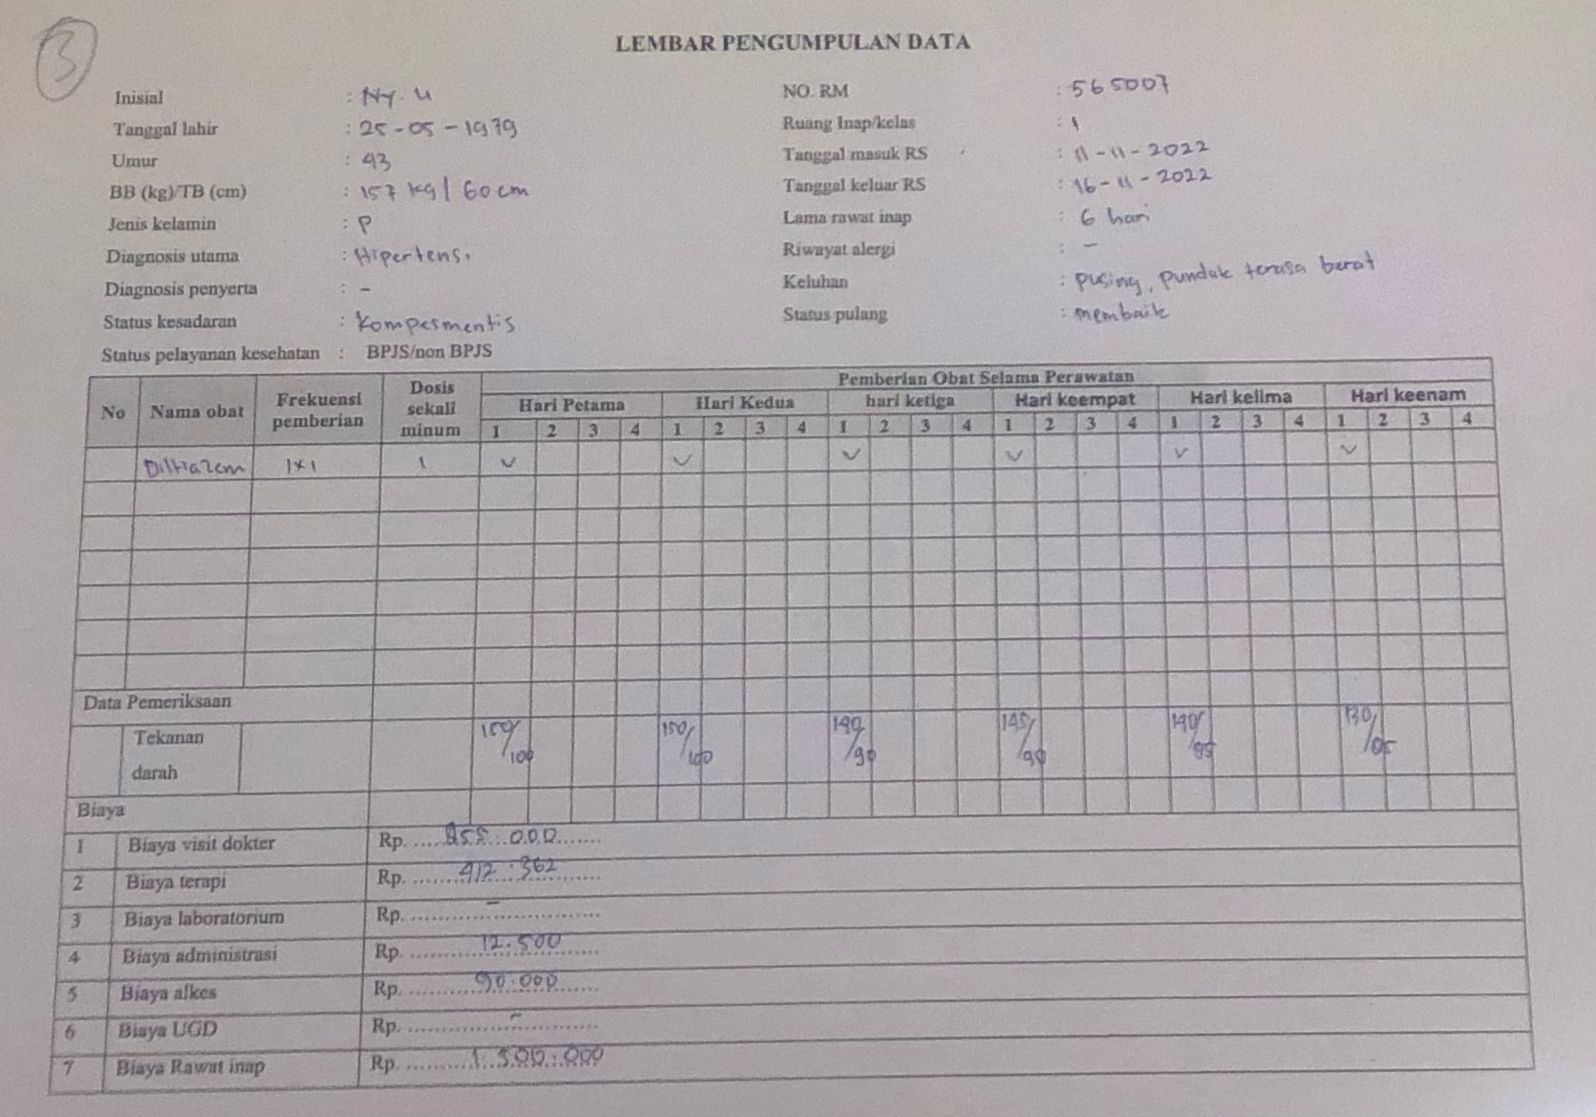 3
LEMBAR PENGUMPULAN DATA
Inisial : Ny. U
Tanggal lahir : 25-05-1979
Umur : 43
BB (kg)/TB (cm) : 157 kg / 60 cm
Jenis kelamin : P
Diagnosis utama : Hipertensi
Diagnosis penyerta : -
Status kesadaran : Kompesmentis
Status pelayanan kesehatan : BPJS/non BPJS
NO. RM : 565007
Ruang Inap/kelas : 1
Tanggal masuk RS : 11-11-2022
Tanggal keluar RS : 16-11-2022
Lama rawat inap : 6 hari
Riwayat alergi : -
Keluhan : pusing, pundak terasa berat
Status pulang : membaik
No Nama obat Frekuensi pemberian Dosis sekali minum Pemberian Obat Selama Perawatan
Hari Petama Hari Kedua hari ketiga Hari keempat Hari kelima Hari keenam
1 2 3 4 1 2 3 4 1 2 3 4 1 2 3 4 1 2 3 4 1 2 3 4
Diltiazem 1x1 1 v v v v v v
Data Pemeriksaan
Tekanan darah 150/100 150/100 140/90 145/90 140/95
Biaya
1 Biaya visit dokter Rp. 855.000
2 Biaya terapi Rp. 412.362
3 Biaya laboratorium Rp. -
4 Biaya administrasi Rp. 12.500
5 Biaya alkes Rp. 90.000
6 Biaya UGD Rp. -
7 Biaya Rawat inap Rp. 1.500.000